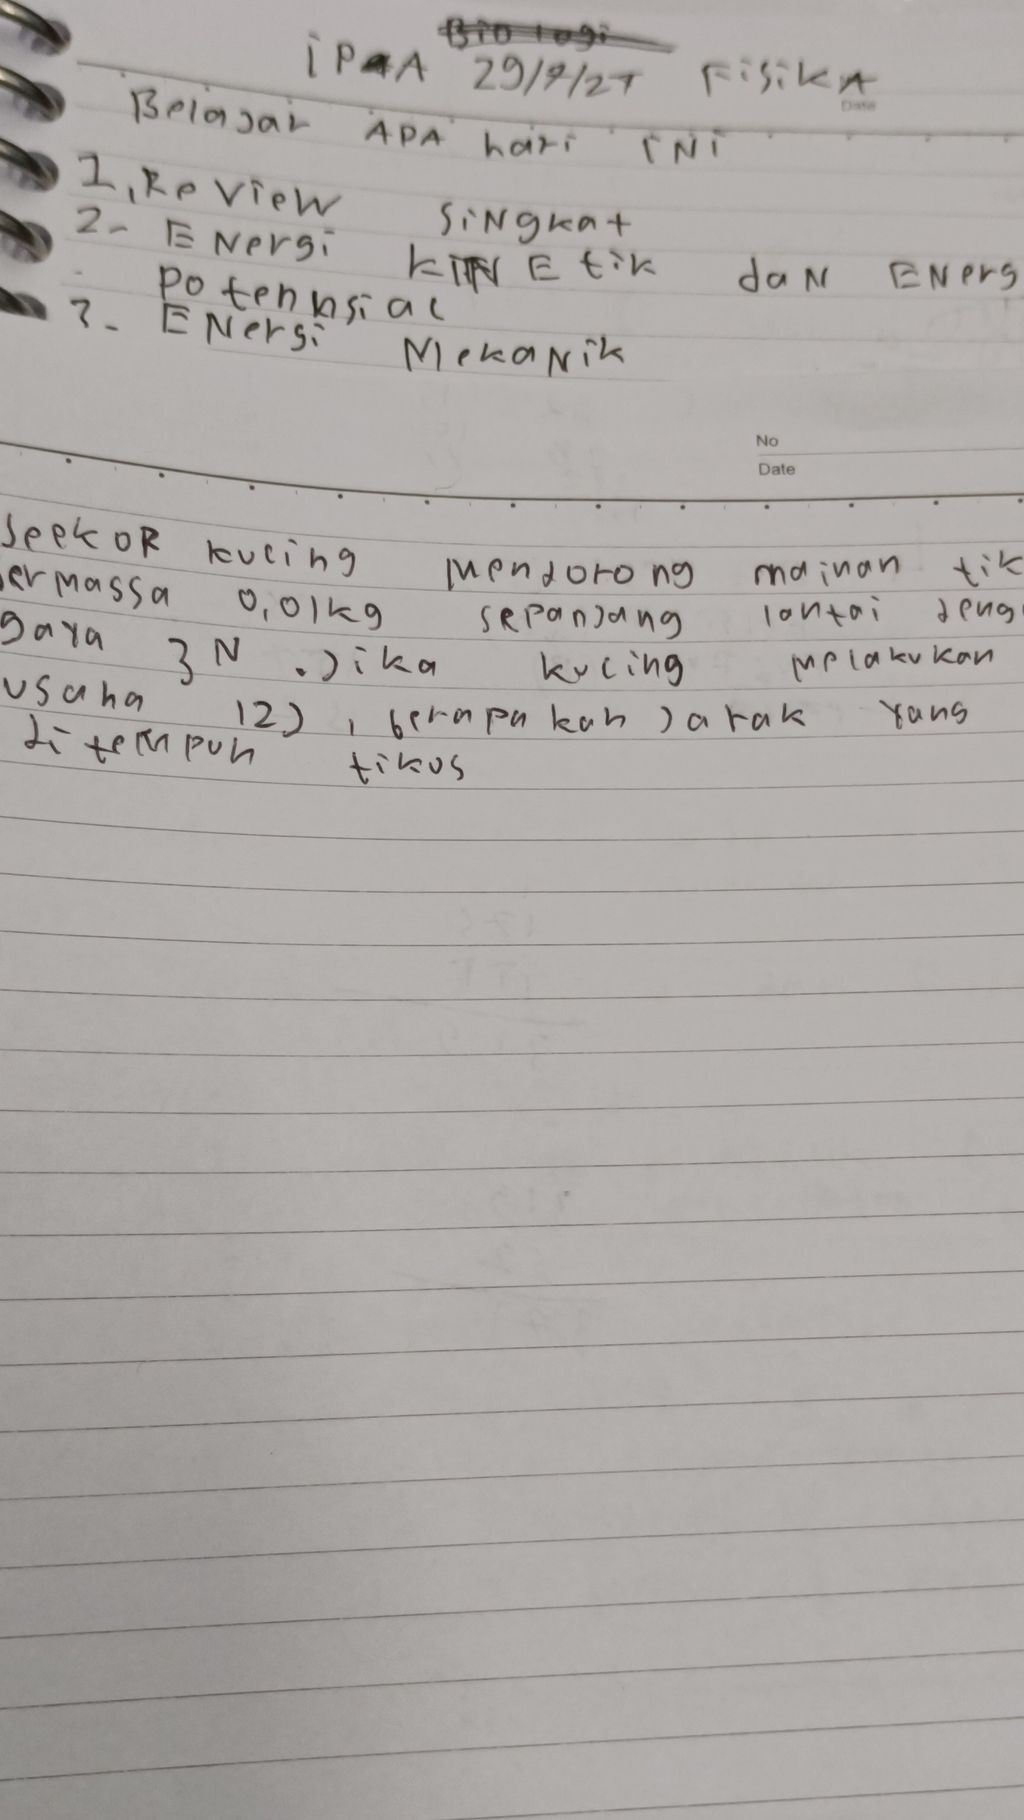 Biologi
iPA 29/9/27 FisikA
Date
Belajar APA hari iNi
1, ReView SiNgkat
2- ENergi kiNEtik daN ENerg
Potennsial
3- ENergi MekaNik
No
Date
SeekOR kucing Mendorong mainan tik
ermassa 0,01kg sepanjang lantai deng
gaya 3 N . Jika kucing melakukan
usaha 12J , berapakah Jarak yang
ditempuh tikus